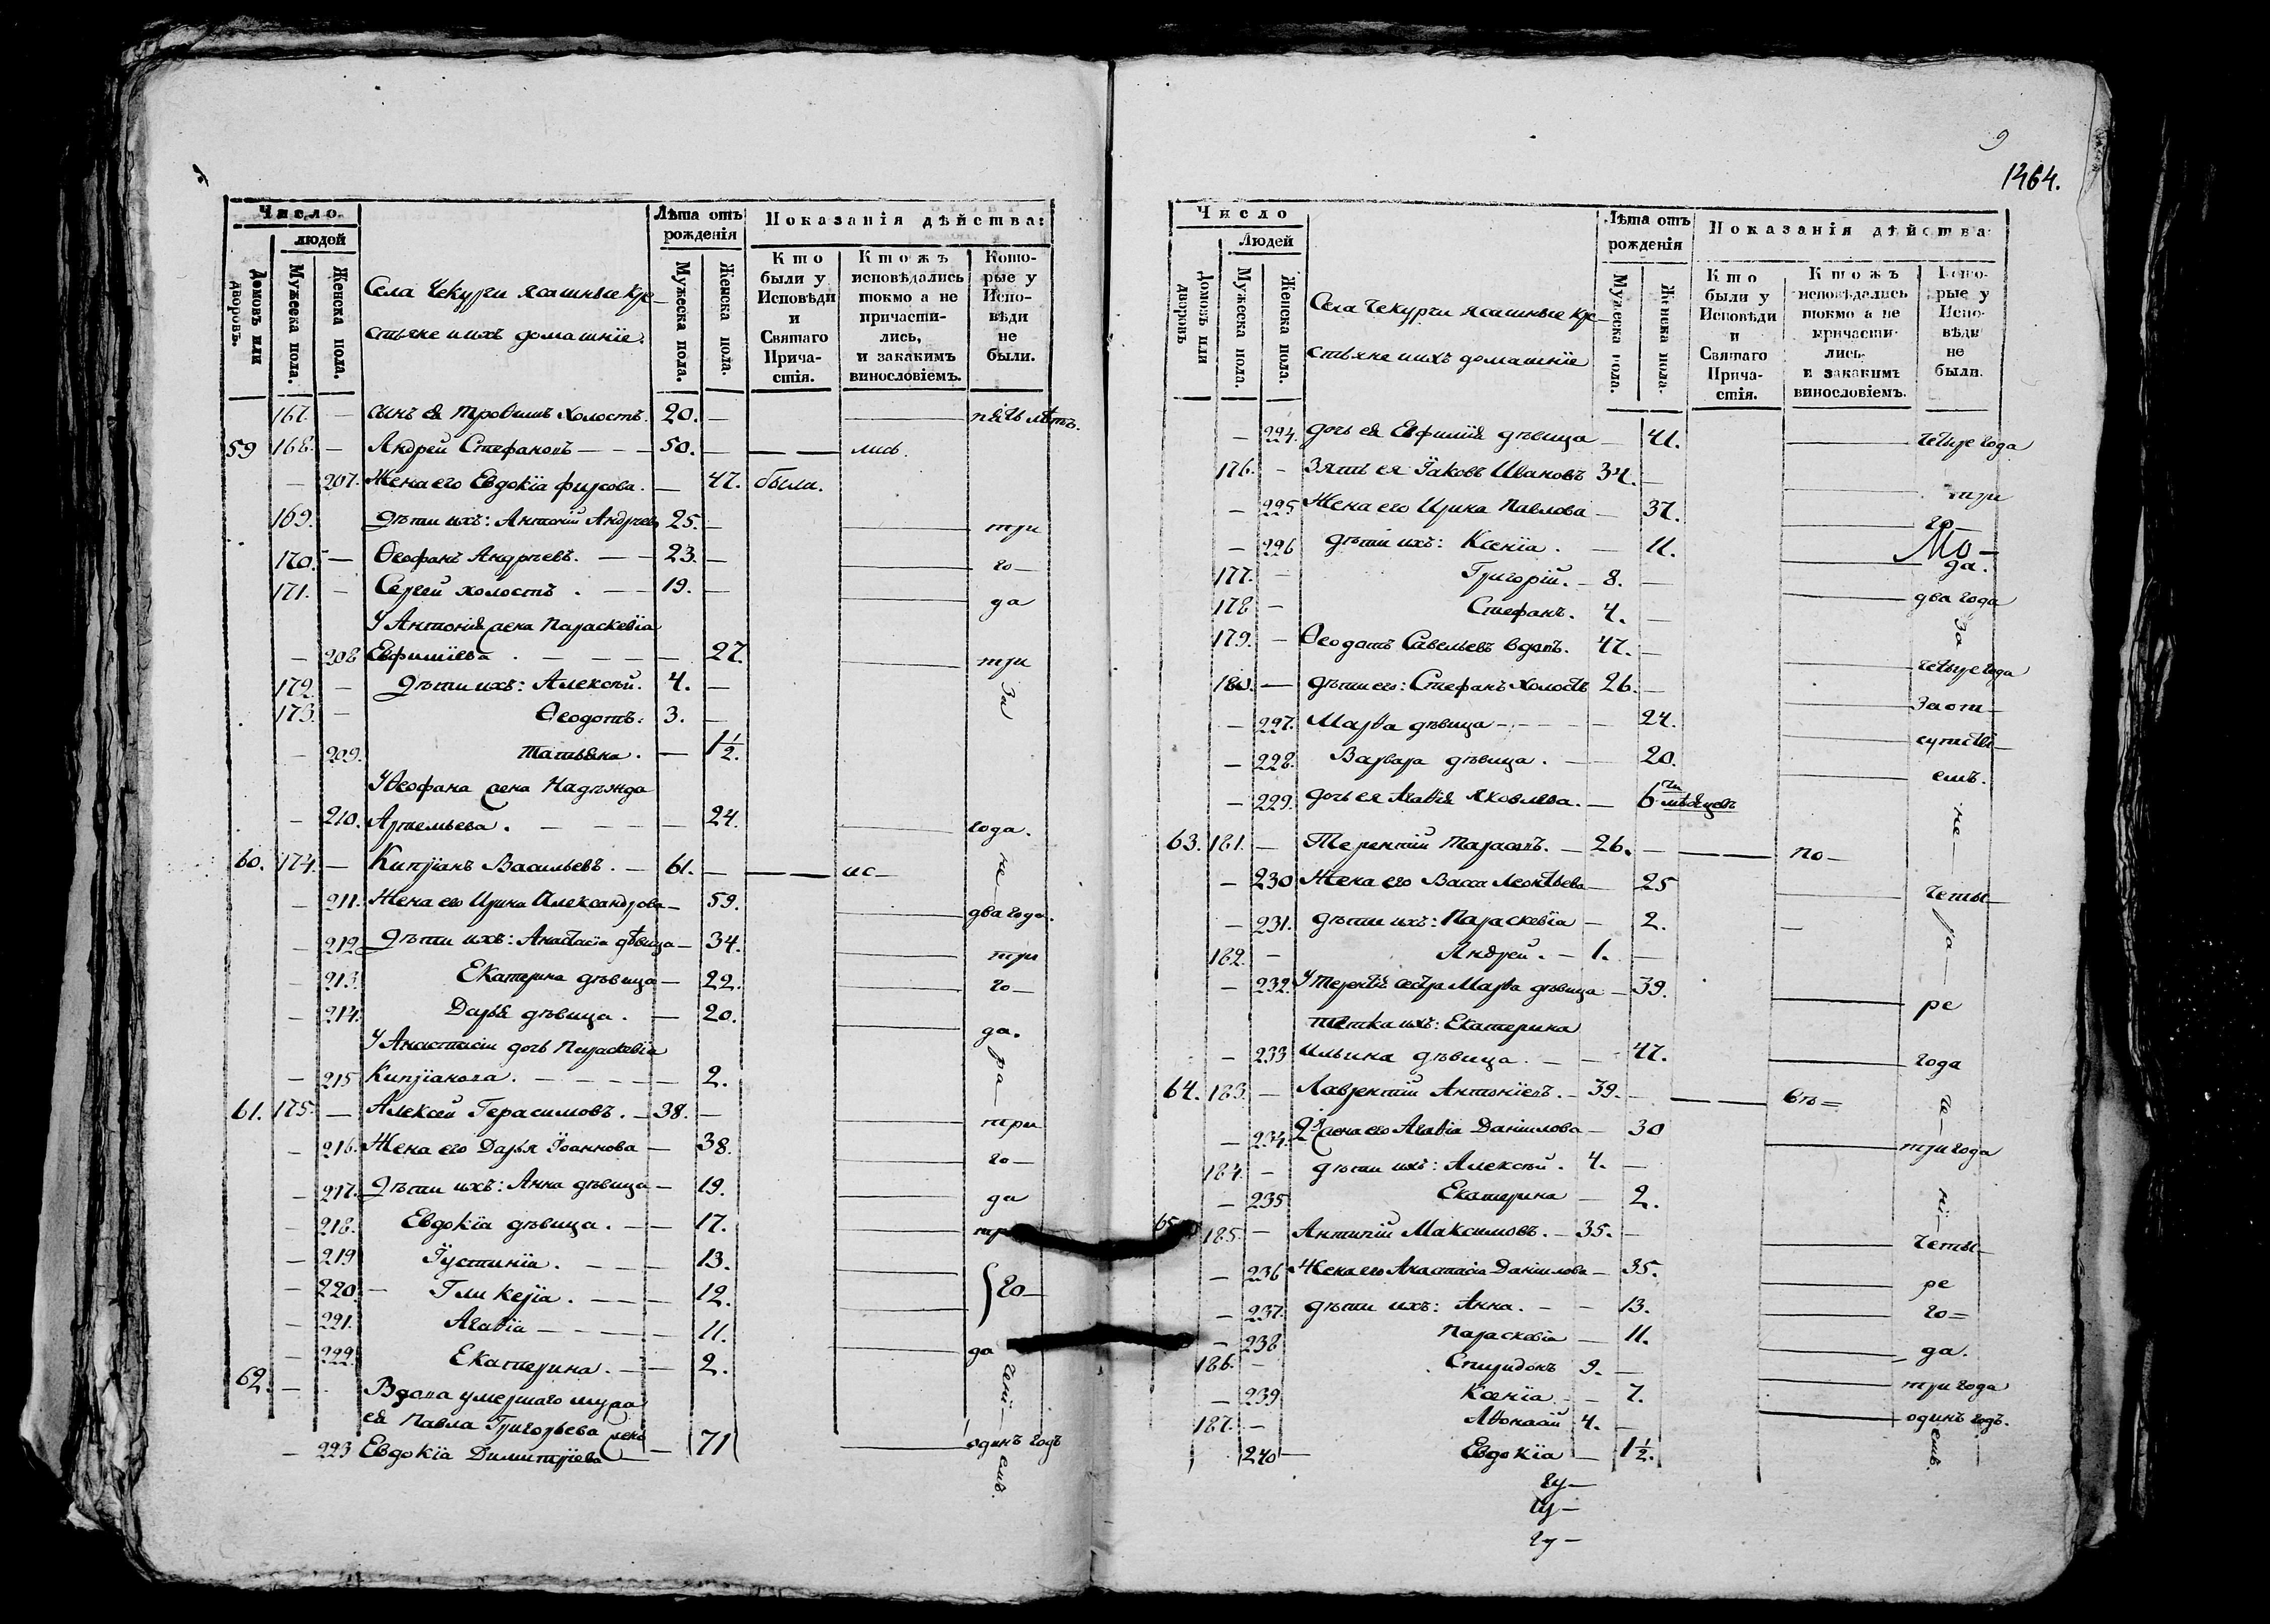 Число
людей
Домовъ или дворовъ.
Мужеска пола.
Женска пола.
Села Чекурги ясашные кре-
стьяне и ихъ домашнїе.
Лѣта отъ рожденія
Мужеска пола.
Женска пола.
Показанія дѣйства:
Кто были у Исповѣди и Святаго Причастія.
Ктожъ исповѣдались токмо а не причастились, и закакимъ винословіемъ.
Которые у Исповѣди не были.
167. — сынъ ея холостъ. 20. — лѣтъ.
59 168. — Андрей Стефановъ — — — 50. — — — лись.
— 207. Жена его Евдокїа фирсова. — 47. были.
169. Дѣти ихъ: Антоній Андреевъ 25. — три
170. — Ѳеофанъ Андреевъ. — — 23. — го —
171. — Сергей холостъ . — — 19. — да
У Антонїя жена Параскевїа
— 208 Евфимїева . — — — — 27. три
172. — Дѣти ихъ: Алексѣй. 4. — За
173. — Ѳеодотъ. 3. —
— 209. Татьяна. — 1½.
У Ѳеофана жена Надежда
— 210. Артемьева. — — — — 24. года.
60. 174. — Кипрїанъ Васильевъ. — 61. — — — ис — не
— 211. Жена его Ирина Александрова — 59. два года.
— 212. Дѣти ихъ: Анастасїа дѣвица — 34. три
— 213. Екатерина дѣвица — 22. го —
— 214. Дарья дѣвица. — 20. да.
У Анастасїи дочь Параскевїа ра
— 215 Кипрїанова. — — — — — 2.
61. 175. — Алексей Герасимовъ. — 38. — три
— 216. Жена его Дарья Їоаннова — 38. го —
— 217. Дѣти ихъ: Анна дѣвица — 19. да
— 218. Евдокїа дѣвица. — — 17.
— 219 Їустинїа. — — — 13.
— 220. — Гликерїа. — — — 12. го —
— 221. Агафїа — — — — — 11.
— 222. Екатерина. — — 2. да
62. — Вдова умершаго
ея Павла Григорьева жена
— 223 Евдокїа Димитрїева — 71 одинъ годъ
емъ.
9
1464.
Число
Людей
Домовъ или дворовъ
Мужеска пола.
Женска пола.
Села Чекурги ясашные кре-
стьяне и ихъ домашнїе
Лѣта отъ рожденія
Мужеска пола.
Женска пола.
Показанія дѣйства
Кто были у Исповѣди и Святаго Причастія.
Ктожъ исповѣдались токмо а не причастились и закакимъ винословіемъ.
Которые у Исповѣди не были.
— 224. дочь ея Евфимїя дѣвица — 41. четыре года
176. — Зять ея Їаковъ Ивановъ 34. — три
— 225 Жена его Ирина Павлова — 37. го —
— 226 дѣти ихъ: Ксенїа. — 11. да.
177. — Григорїй. — 8. —
178 — Стефанъ. 4. — два года
179. — Ѳеодотъ Савельевъ вдовъ. 47. — За четыре года
180. — дѣти его: Стефанъ холостъ 26. — За от —
— 227. Марѳа дѣвица — — — — 24. сутстві —
— 228. Варвара дѣвица. — — 20. емъ.
— 229. дочь ея Агаѳїя Яковлева. — 6 ти мѣсяцевъ не
63. 181. — Терентїй Тарасовъ. — 26. — — — по —
— 230 Жена его Васса Леонтьева — 25 четы —
— 231. дѣти ихъ: Параскевїа — 2. ра
182. — Андрей. — 1. —
— 232. У Терентїя сестра Марѳа дѣвица — 39. ре
тетка ихъ: Екатерина
— 233 Ильина дѣвица. — — 47. года
64. 183. — Лаврентїй Антонїевъ. — 39. — — —
— 234. 2я жена его Агаѳїа Данїилова — 30 три года
184. — дѣти ихъ: Алексѣй. 4. —
— 235 Екатерина — 2.
65 185. — Антипїй Максимовъ. — 35. — четы —
— 236 Жена его Анастасїа Данїилова — 35. ре
— 237. дѣти ихъ: Анна. — — 13. го =
— 238 Параскевїа — 11. да.
186. — Спиридонъ 9. —
— 239 Ксенїа — 7. три года
187. — Аѳонасїй 4. — одинъ годъ.
240 — Евдокїа — 1½. емъ.